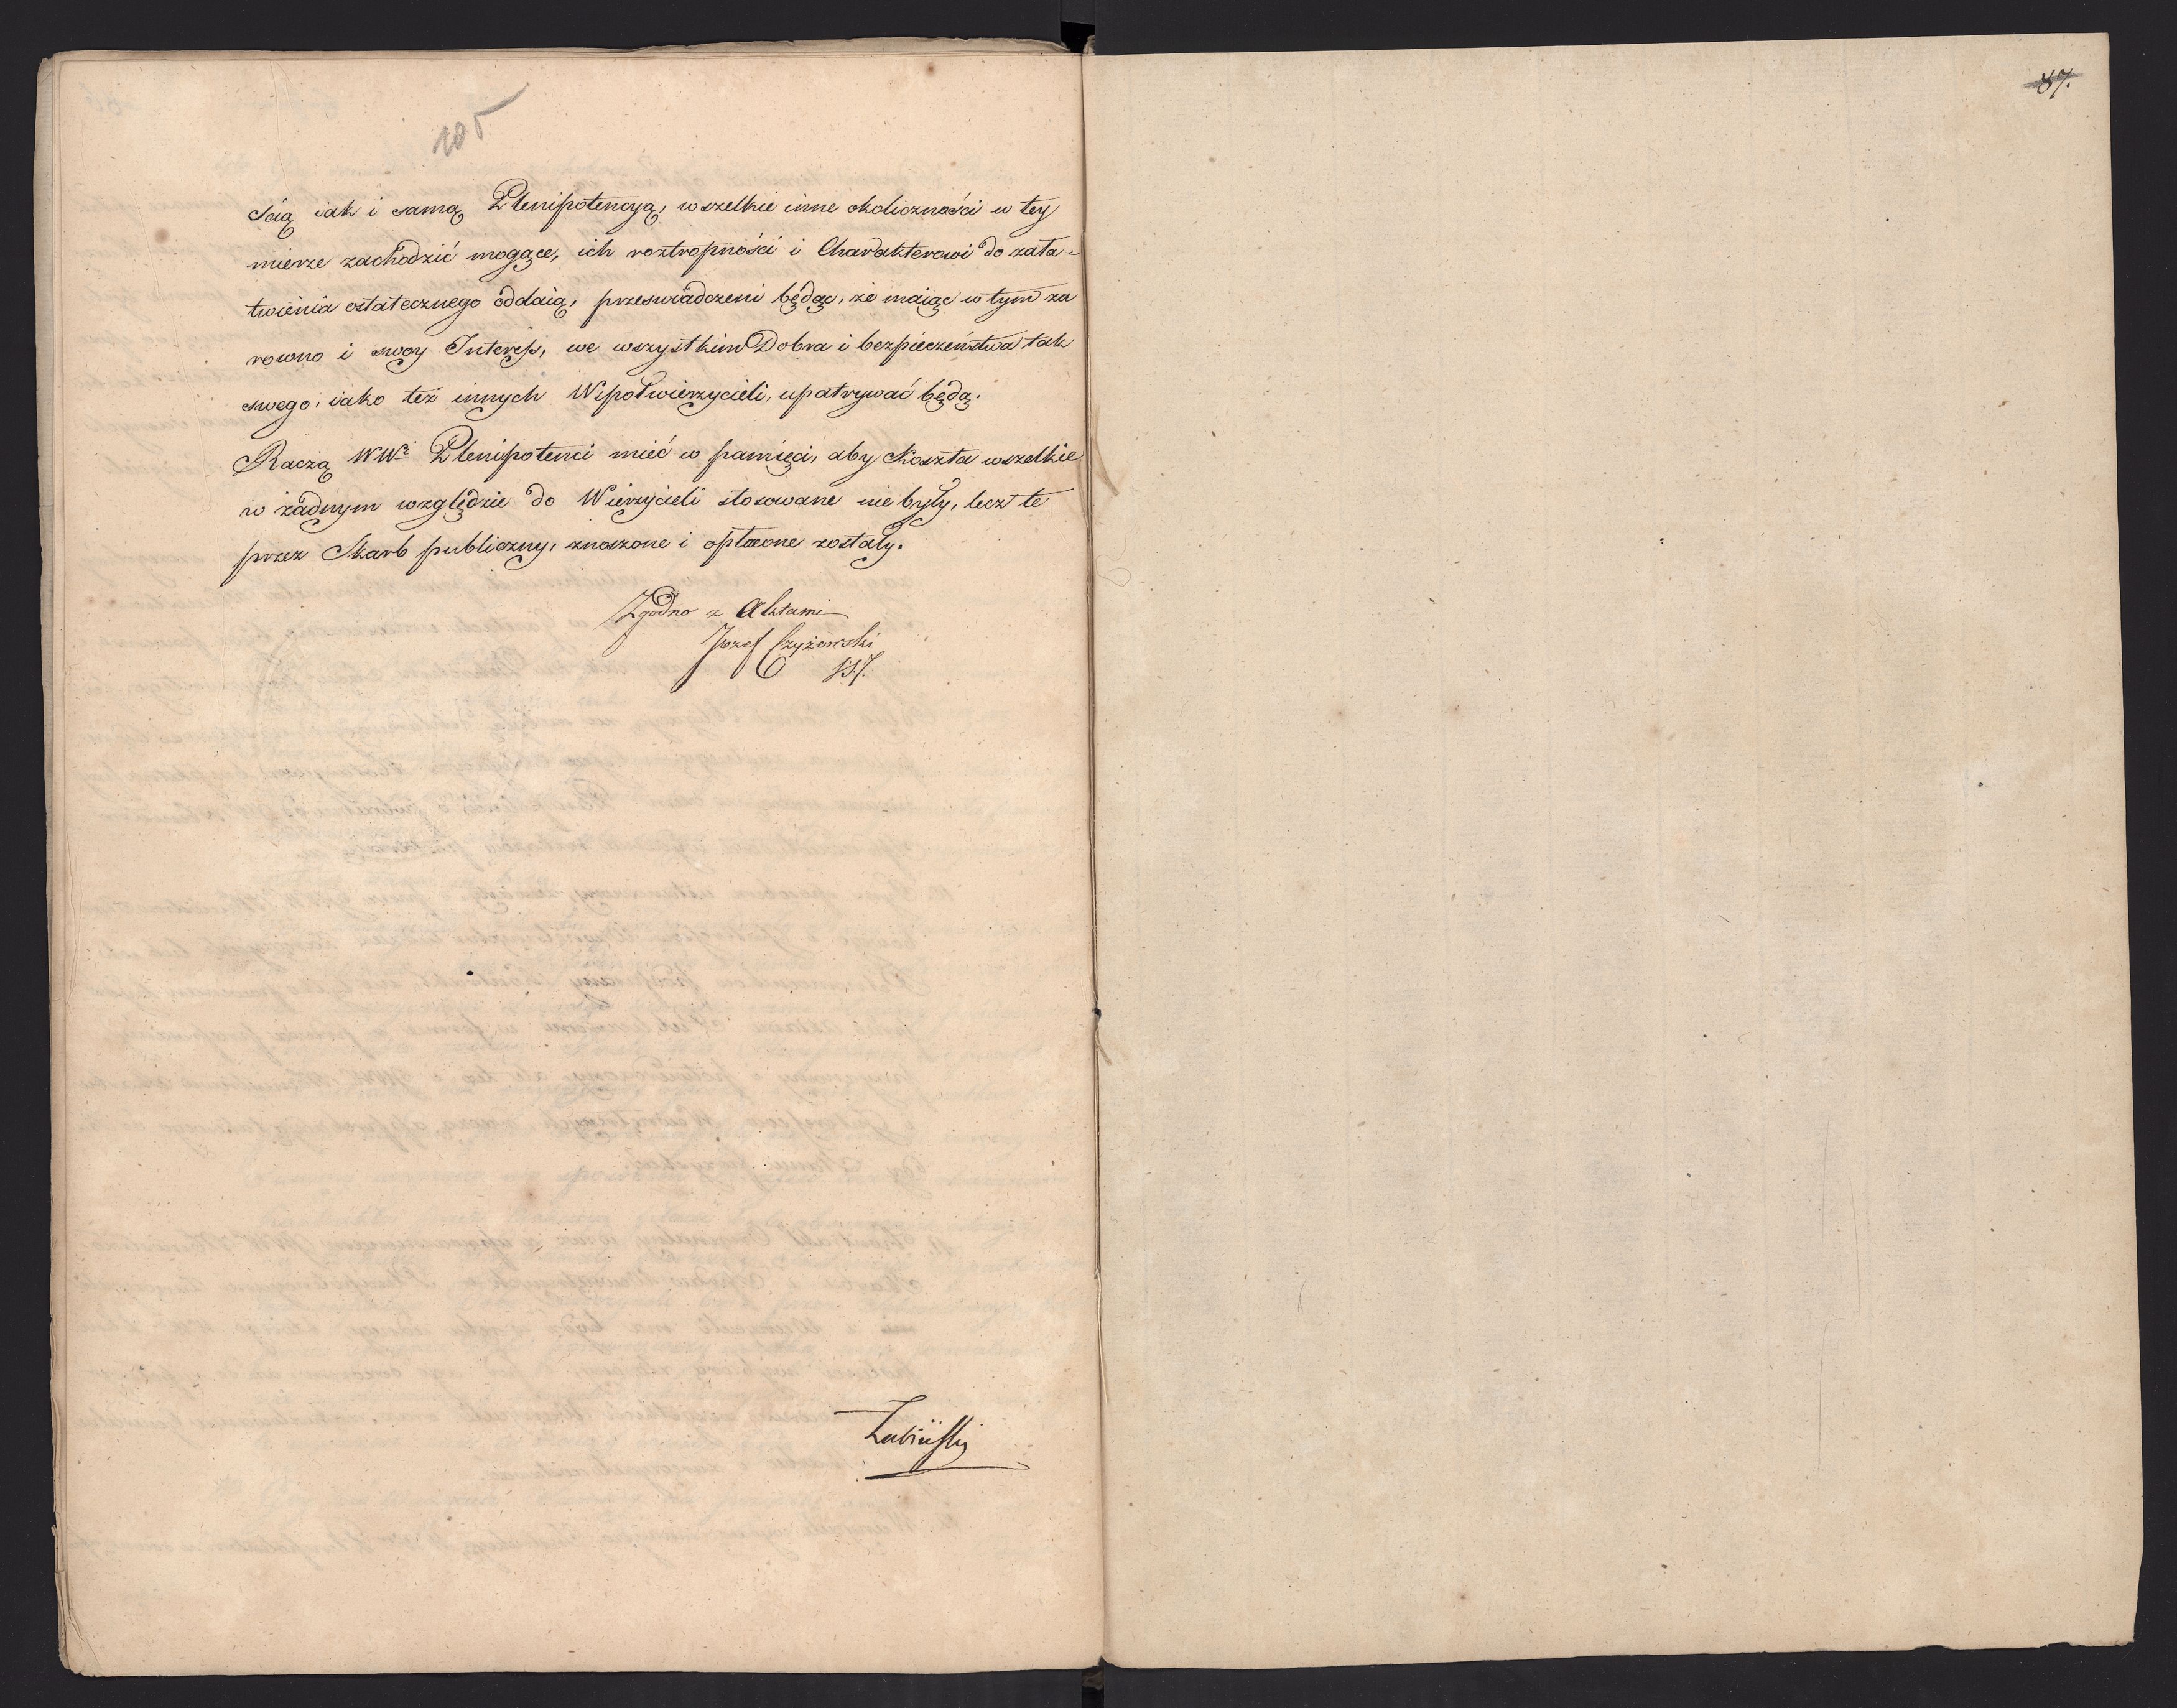 105
ścią iak i samą Plenipotencyą, wszelkie inne okoliczności w tey
mierze zachodzić mogące, ich roztropności i Charakterowi do zała-
twienia ostatecznego oddaią, przeswiadczeni będąc, że maiąc w tym za
rowno i swoy Interess, we wszystkim Dobra i bezpieczeństwa tak
swego, iako też innych Wspołwierzycieli, upatrywać będą.
Raczą WWi Plenipotenci mieć w pamięci, aby Koszta wszelkie
w żadnym względzie do Wierzycieli stosowane nie były, lecz te
przez Skarb publiczny, znoszone i opłacone zostały.
Zgodno z Aktami
Jozef Czyżewski
Łubieński
87.